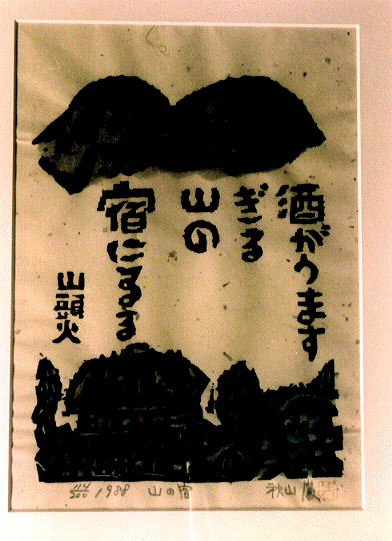 酒がうます
ぎる
山の
宿にゐる
山頭火
1988 山の宿 秋山巌